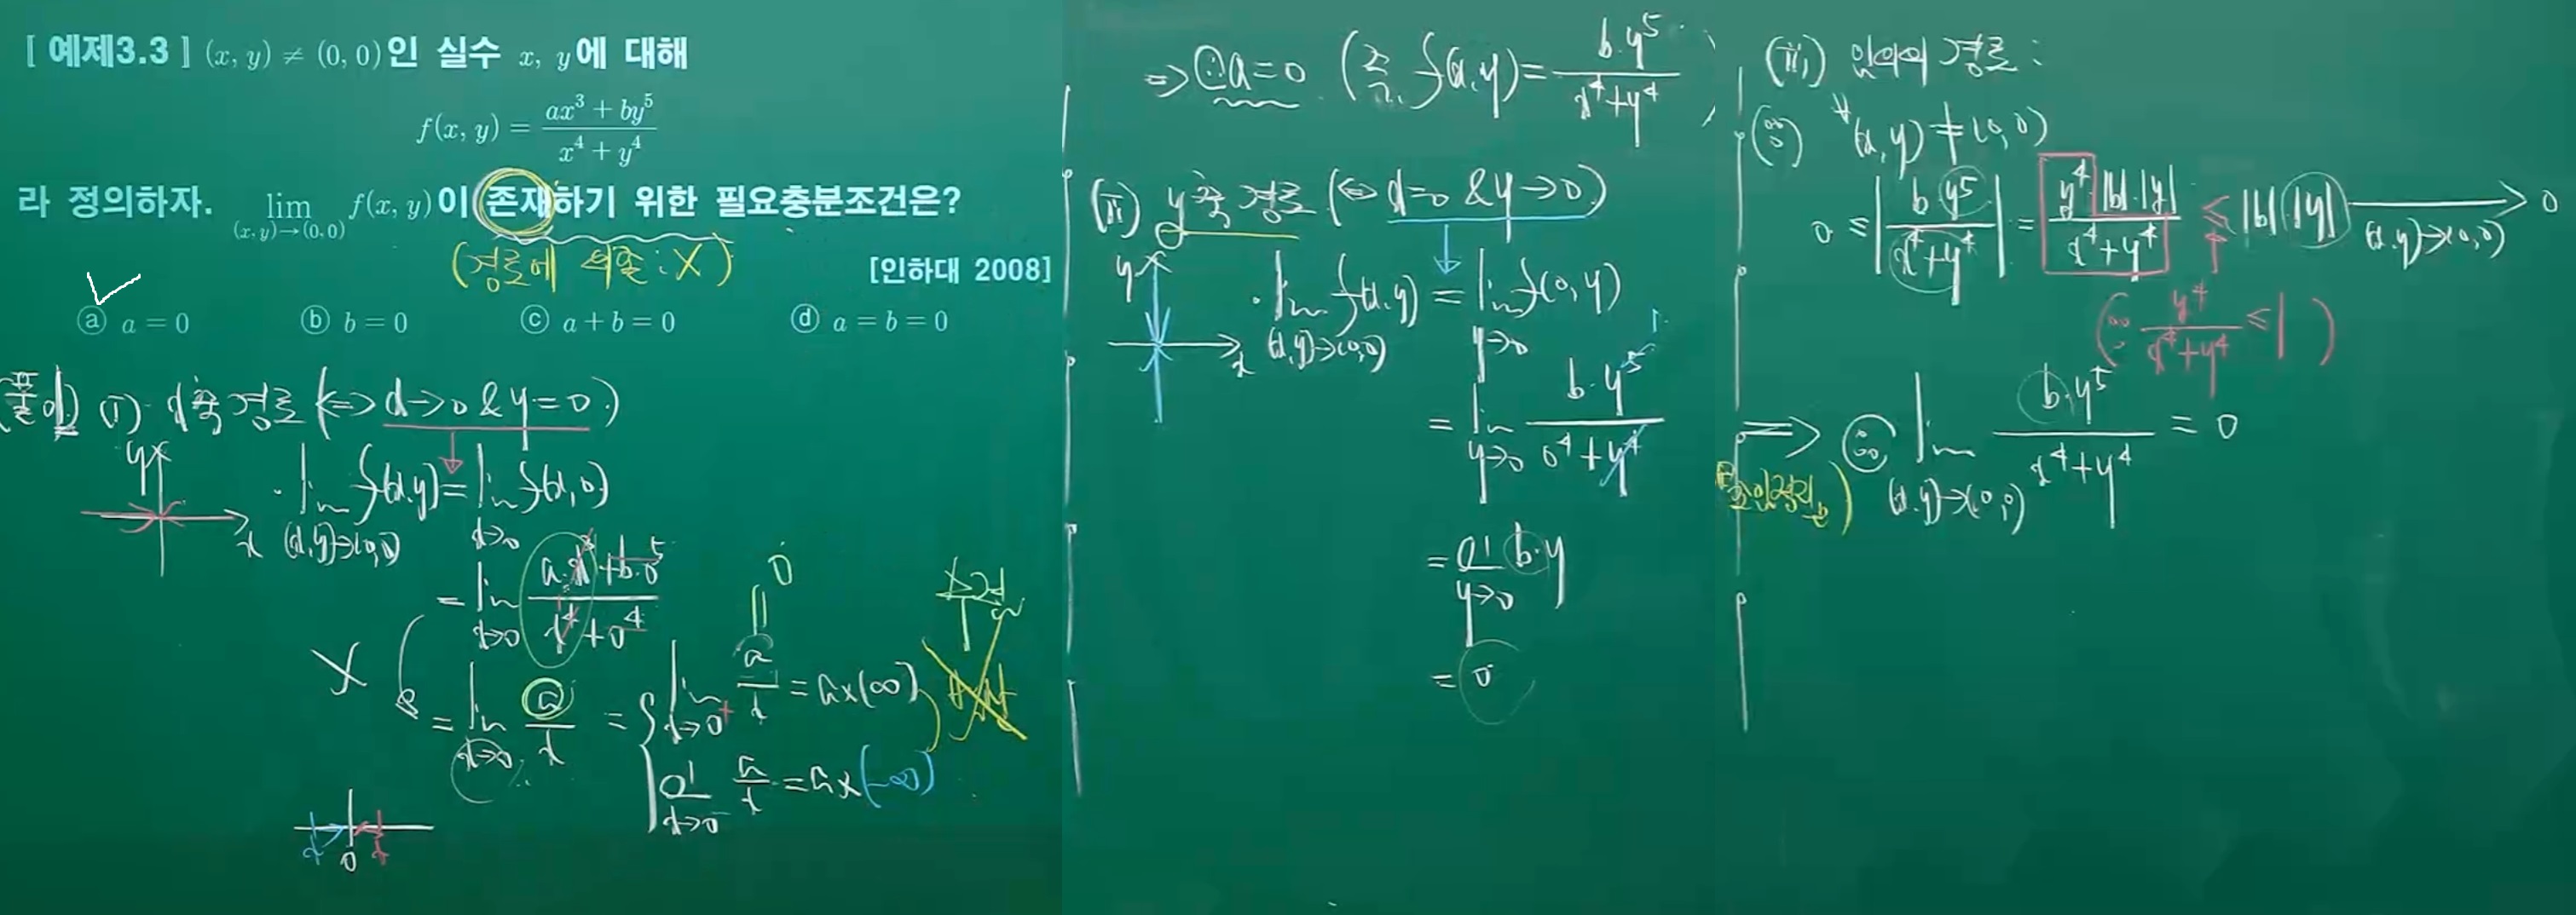 [ 예제3.3 ] (x, y) ≠ (0, 0)인 실수 x, y에 대해
f(x, y) = (ax³ + by⁵)/(x⁴ + y⁴)
라 정의하자. lim_{(x, y)→(0, 0)} f(x, y)이 존재하기 위한 필요충분조건은?
(경로에 의존 : X)
[인하대 2008]
ⓐ a = 0 ⓑ b = 0 ⓒ a + b = 0 ⓓ a = b = 0
풀이) (i) x축 경로 (⇔ x→0 & y=0.)
y
x
lim_{(x,y)→(0,0)} f(x,y) = lim_{x→0} f(x,0)
= lim_{x→0} (a·x³+b·0⁵)/(x⁴+0⁴)
X
= lim_{x→0} a/x = { lim_{x→0⁺} a/x = a×(∞)
lim_{x→0⁻} a/x = a×(-∞)
0
x 0 x
⇒ ∴ a=0 (즉, f(x,y) = b·y⁵/(x⁴+y⁴))
(ii) y축 경로 (⇔ x=0 & y→0)
y
x
lim_{(x,y)→(0,0)} f(x,y) = lim_{y→0} f(0,y)
= lim_{y→0} b·y⁵/(0⁴+y⁴)
= lim_{y→0} b·y
= 0
(iii) 임의의 경로 :
(∵) ∀(x,y)≠(0,0)
0 ≤ |b y⁵/(x⁴+y⁴)| = y⁴·|b|·|y|/(x⁴+y⁴) ≤ |b|·|y| → 0
(x,y)→(0,0)
(∵ y⁴/(x⁴+y⁴) ≤ 1)
⇒ ∴ lim_{(x,y)→(0,0)} b·y⁵/(x⁴+y⁴) = 0